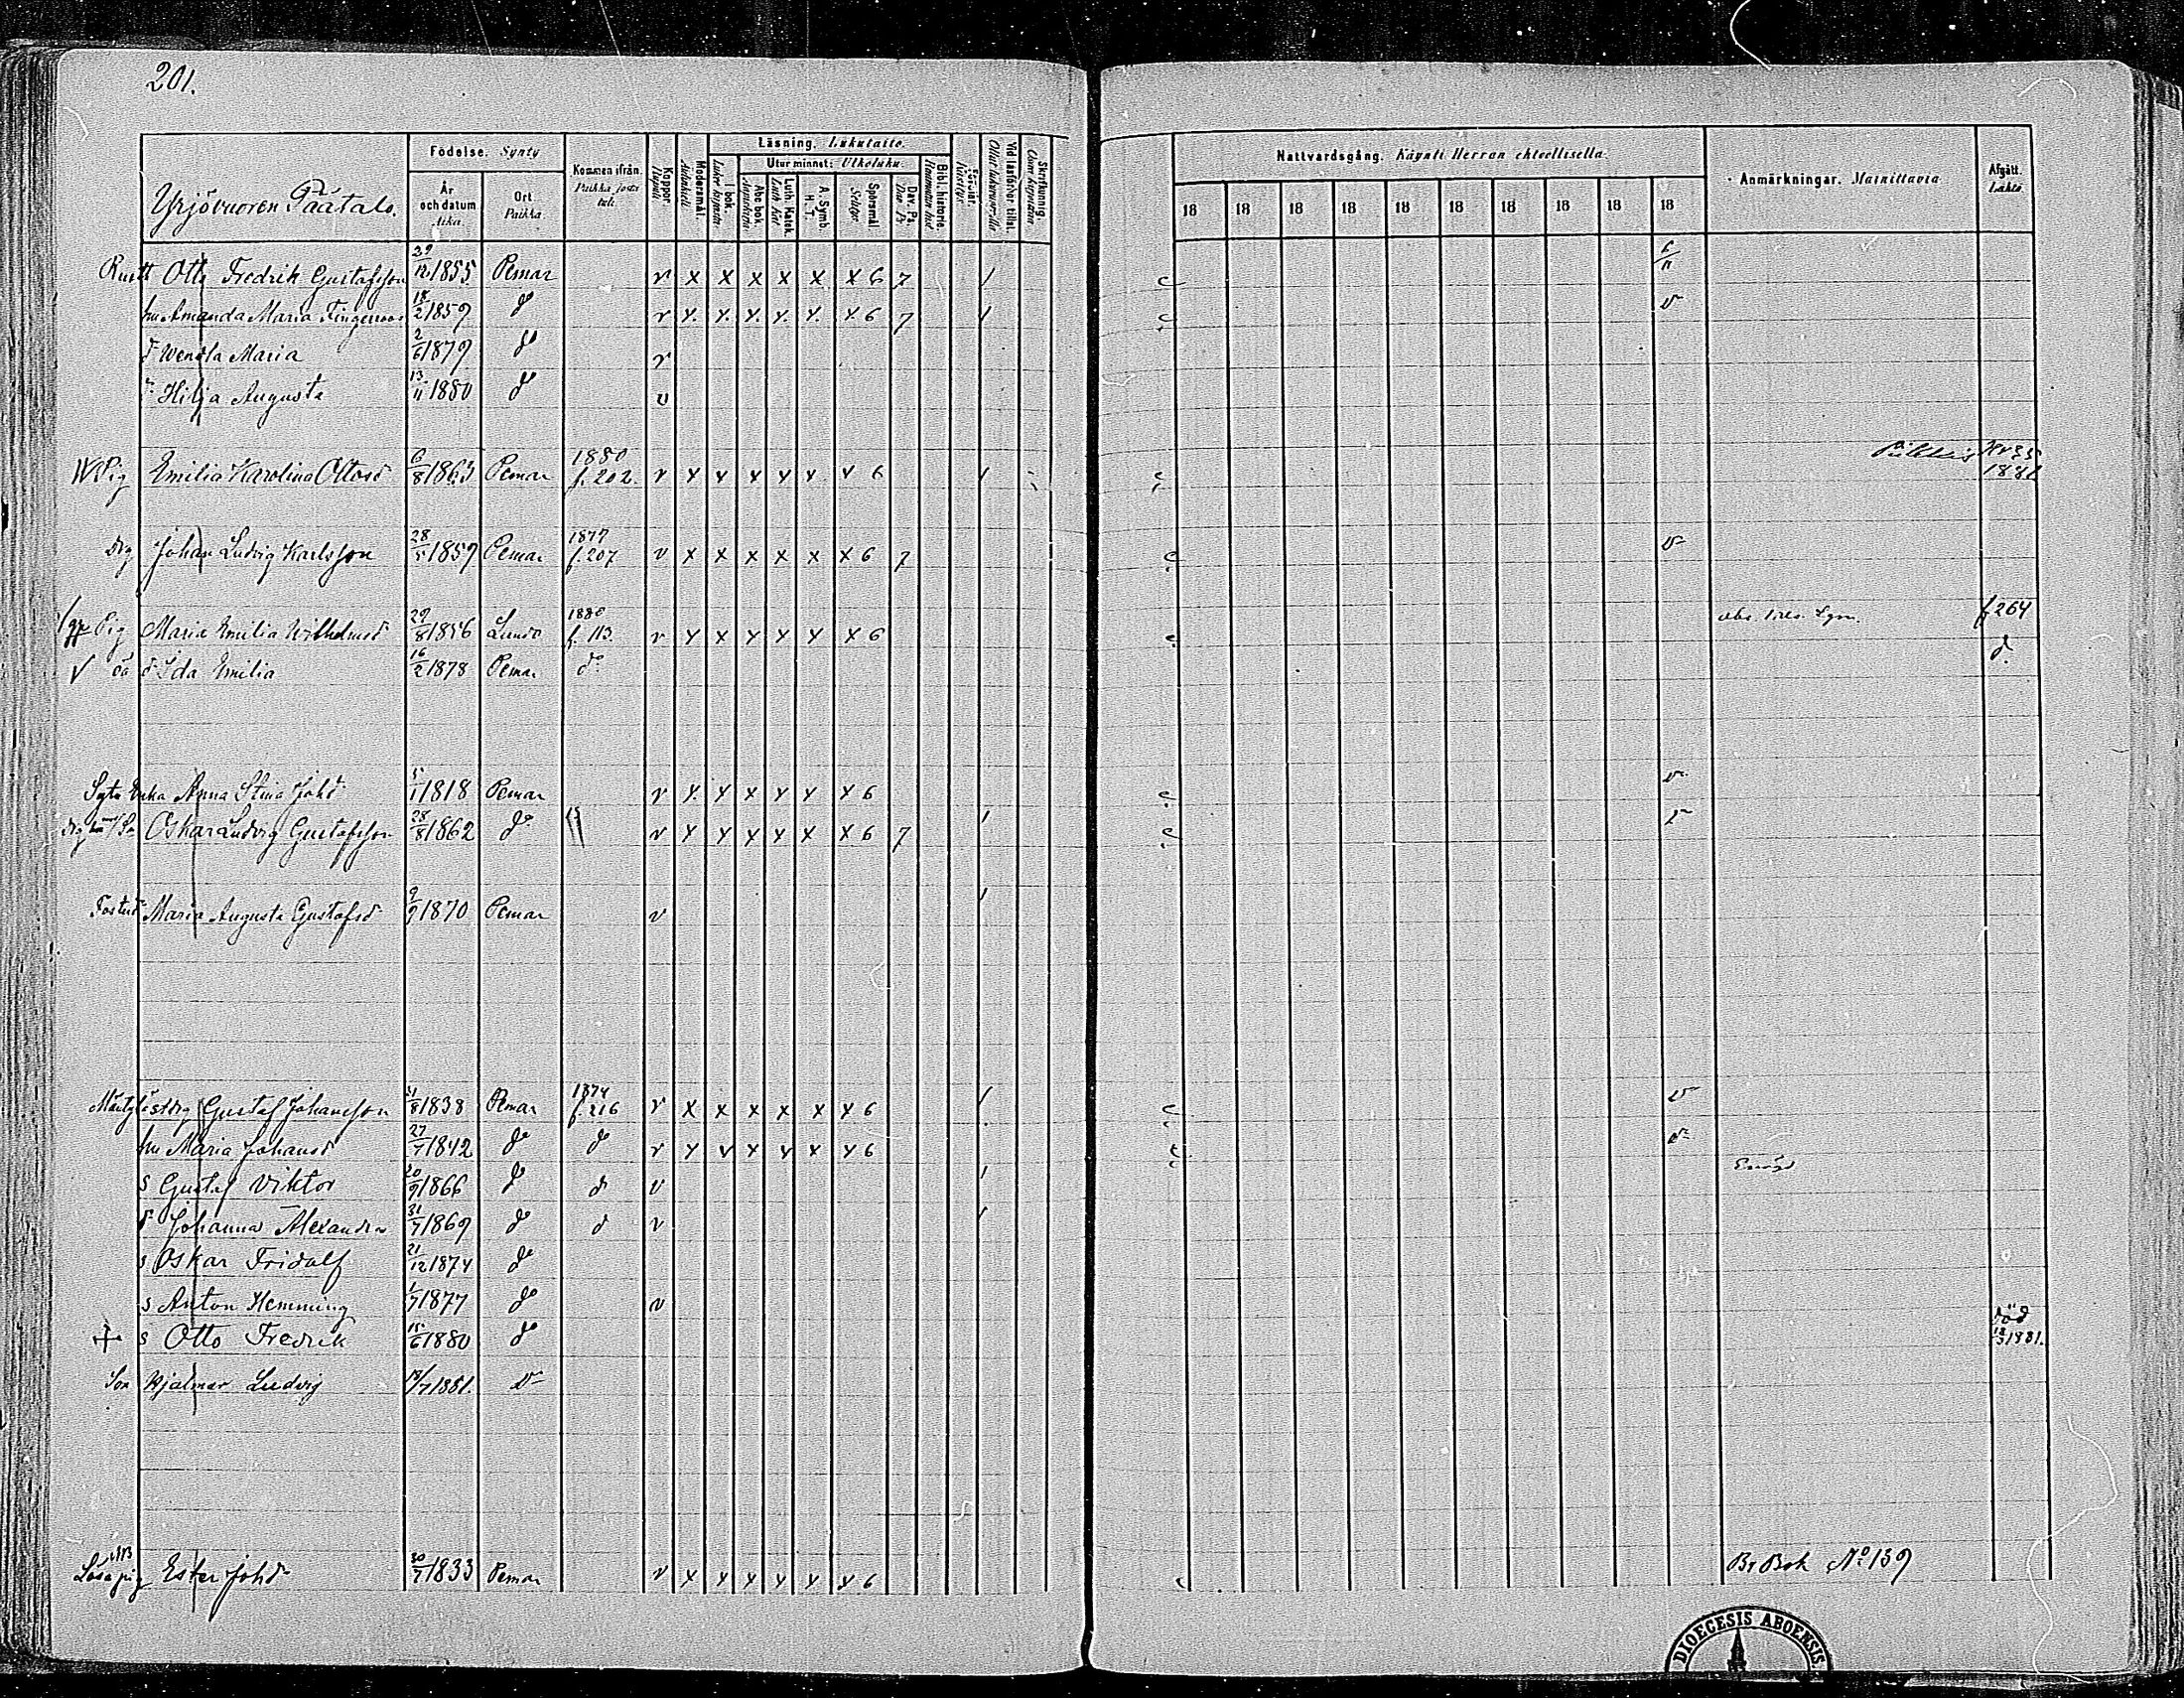 201.
Yrjövuoren Päätalo.
Födelse. Synty
År och datum Aika.
Ort. Paikka.
Kommen ifrån. Paikka, josta tuli.
Koppor. Rupuli.
Modersmål. Äidinkieli.
Läsning. Lukutaito.
I bok.
Utur minnet: Ulkoluku.
Abc bok. Aapiskirja
Luth. Katek. Luth. Kat
A. Symb. H. T.
Spörsmål
Dav. Ps. Dav. Ps.
Bibl. historie.
Vid läsförhör tillst.
Skriftkunnig.
Nattvardsgång. Käynti Herran ehtoollisella.
18 18 18 18 18 18 18 18 18 18
Anmärkningar. Mainittavia
Afgått. Lähtö.
Otto Fredrik Gustafsson 29/12 1855 Pemar v x x x x x x 6 7
hu Amanda Maria 18/2 1859 do v x x x x x x 6 7 v
d Wendla Maria 2/6 1879 do v
d Hilja Augusta 13/11 1880 do v
Pig Emilia Karolina Ottosd 6/8 1863 Pemar 1880 f. 202. v x x x x x x 6
1881
drg Johan Ludvig Karlsson 28/5 1859 Pemar 1877 f. 207 v x x x x x x 6 7 v
Pig Maria Emilia Wilhelmsd 29/8 1856 Lundo 1880 f. 113. v x x x x x x 6 f 264
oä d Ida Emilia 16/2 1878 Pemar do d
Anna Stina Johd 5/1 1818 Pemar v x x x x x x 6 v
Oskar Ludvig Gustafsson 28/8 1862 do v x x x x x x 6 7
Fosterd Maria Augusta Gustafsd 9/9 1870 Pemar v
Gustaf Johansson 21/8 1838 Pemar 1874 f. 216 v x x x x x x 6 v
hu Maria Johansd 27/7 1842 do do v x x x x x x 6 v
s Gustaf Viktor 20/9 1866 do d v
d Johanna Alexandra 31/7 1869 do d v
s Oskar Fridolf 21/12 1874 do
s Anton Hemming 1/7 1877 do v
s Otto Fredrik 15/6 1880 do Död 1881.
Son Hjalmar Ludvig 1881.
Lösa pig Ester Johd 30/7 1833 Pemar v x x x x x x 6 Br Bok No 139
DIOECESIS ABOENSIS